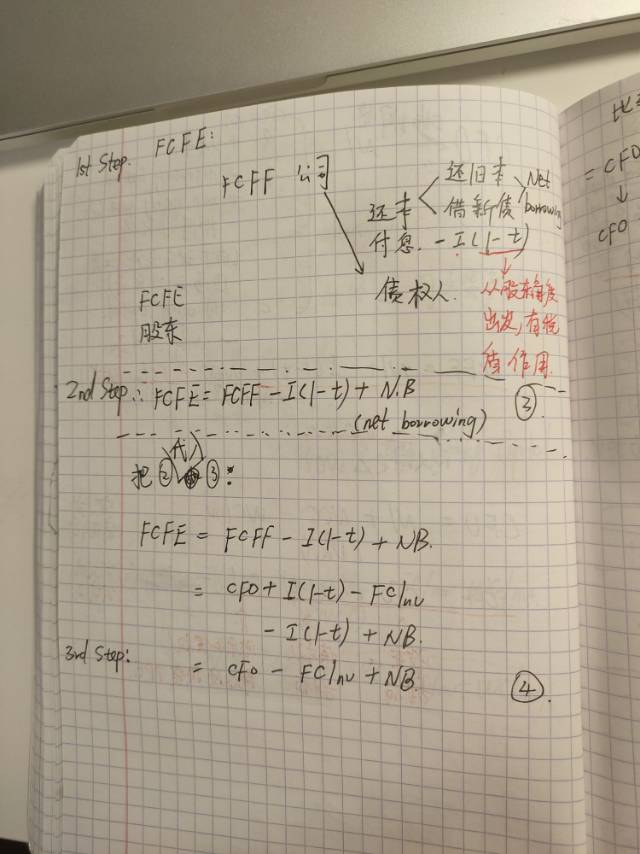 1st Step. FCFE:
FCFF 公司
还本 还旧本 借新债 Net borrowing
付息. - I(1-t)
债权人.
从股东角度
出发,有税
盾作用.
FCFE
股东
2nd Step: ∴ FCFE = FCFF - I(1-t) + N.B ③.
(net borrowing)
代入
把②③:
FCFE = FCFF - I(1-t) + NB.
= CFO + I(1-t) - FCInv
- I(1-t) + NB.
3rd Step: = CFO - FCInv + NB. ④.
= CFO
↓
CFO